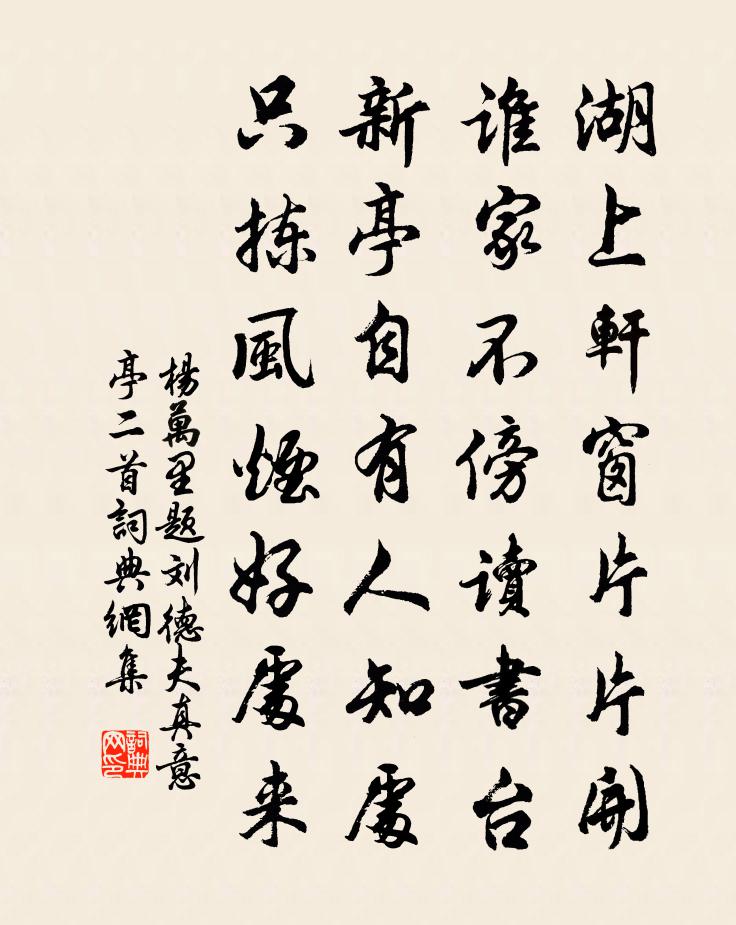 湖上軒窗片片開
誰家不傍讀書台
新亭自有人知處
只拣風煙好處来
楊萬里题刘德夫真意
亭二首詞典網集
詞典
网印